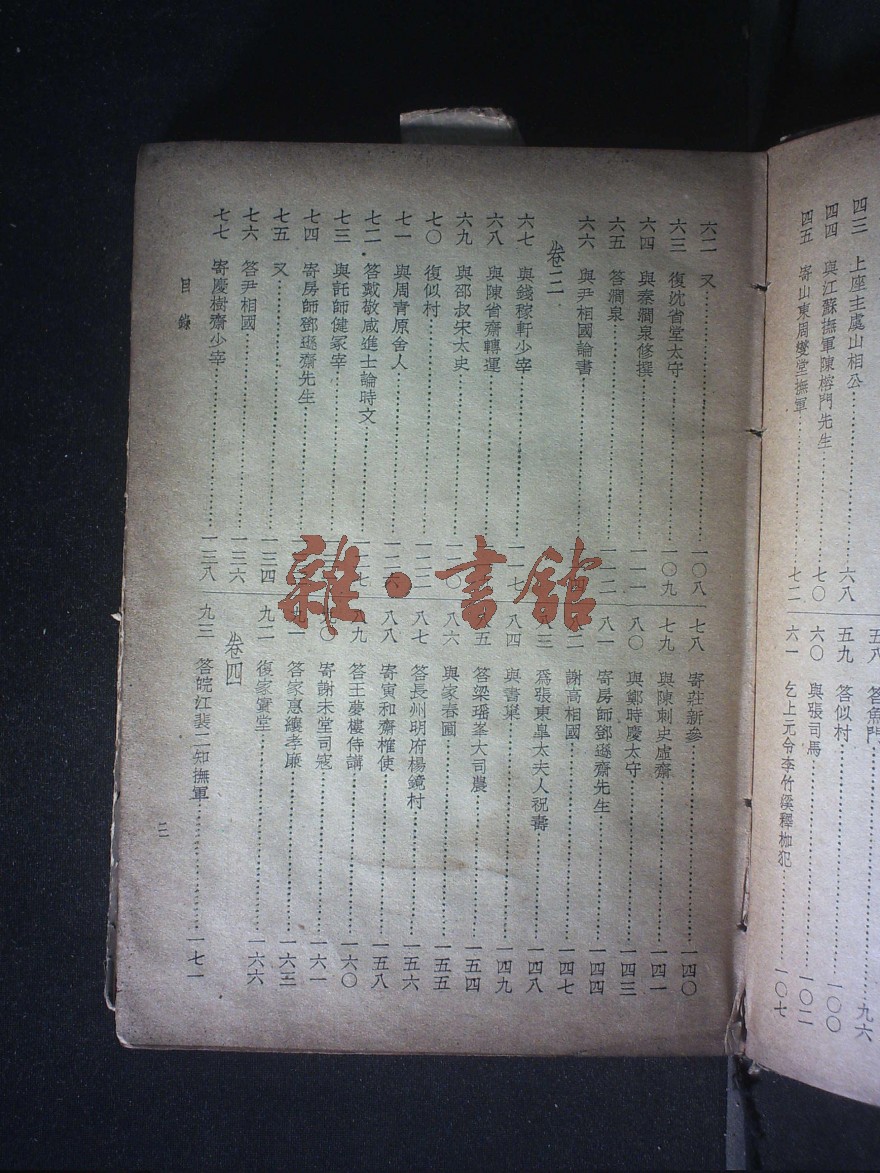 四三 上座主虞山相公……六八
四四 與江蘇撫軍陳榕門先生……七〇
四五 寄山東周燮堂撫軍……七二
五八 答魚門……九六
五九 答似村……一〇〇
六〇 與張司馬……一〇二
六一 乞上元令李竹溪釋枷犯……一〇七
六二 又……一〇八
六三 復沈省堂太守……一〇九
六四 與秦澗泉修撰……一一一
六五 答澗泉……一一二
六六 與尹相國論書……
卷三
六七 與錢稼軒少宰……一一七
六八 與陳省齋轉運
六九 與邵叔宋太史……一二〇
七〇 復似村……一二三
七一 與周青原舍人……一二六
七二 答戴敬咸進士論時文……一二七
七三 與託師健冢宰
七四 寄房師鄧遜齋先生
七五 又……一三四
七六 答尹相國……一三六
七七 寄慶樹齋少宰……一三八
七八 寄莊新參……一四〇
七九 與陳刺史虛齋……一四一
八〇 與鄭時慶太守……一四三
八一 寄房師鄧遜齋先生……一四四
八二 謝高相國……一四七
八三 為張東皐太夫人祝壽……一四八
八四 與書巢……一四九
八五 答梁瑶峯大司農……一五四
八六 與家春圃……一五五
八七 答長州明府楊鏡村……一五六
八八 寄寅和齋榷使……一五八
八九 答王夢樓侍講……一六〇
九〇 寄謝未堂司寇……一六一
九一 答家惠纕孝廉……一六三
九二 復家實堂……一六六
卷四
九三 答皖江裴二知撫軍……一七一
目錄
三
雜·書館